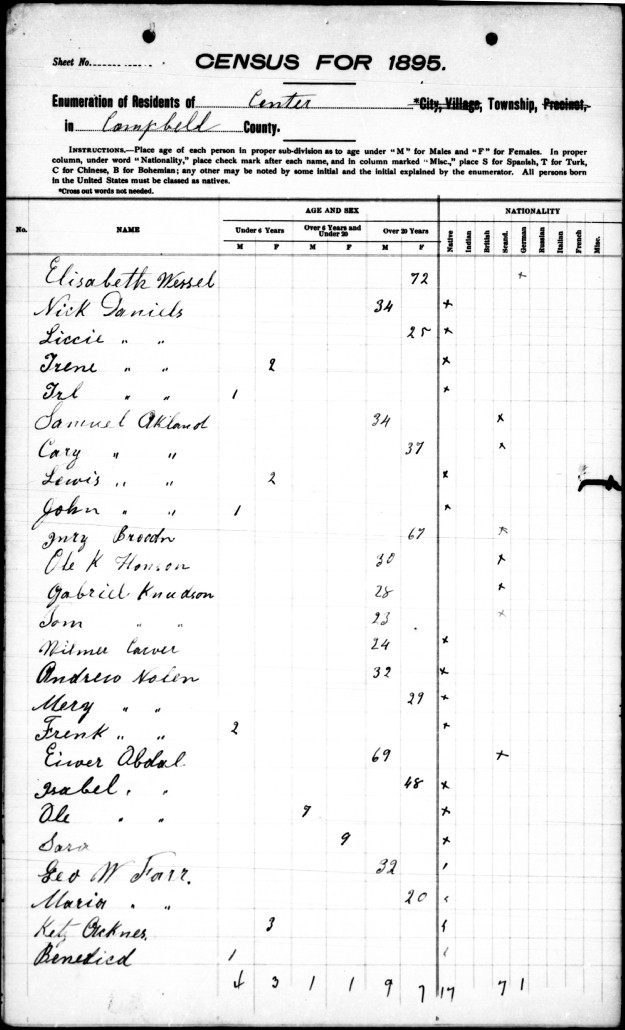 Sheet No.
CENSUS FOR 1895.
Enumeration of Residents of Center *City, Village, Township, Precinct,
in Campbell County.
INSTRUCTIONS.—Place age of each person in proper sub-division as to age under "M" for Males and "F" for Females. In proper
column, under word "Nationality," place check mark after each name, and in column marked "Misc.," place S for Spanish, T for Turk,
C for Chinese, B for Bohemian; any other may be noted by some initial and the initial explained by the enumerator. All persons born
in the United States must be classed as natives.
*Cross out words not needed.
No. NAME AGE AND SEX NATIONALITY
Under 6 Years Over 6 Years and Under 20 Over 20 Years Native Indian British Scand. German Russian Italian French Misc.
M F M F M F
Elisabeth Wessel 72 x
Nick Daniels 34 x
Liccie " " 25 x
Irene " " 2 x
Irl " " 1 x
Samuel Akland 34 x
Cary " " 37 x
Lewis " " 2 x
John " " 1 x
67 x
Ole K Honson 30 x
Gabriel Knudson 28 x
Tom " " 23 x
Wilmer Carver 24 x
Andrew Nolen 32 x
Mery " " 29 x
Frenk " " 2 x
Eiver Abdal 69 x
Isabel " " 48 x
Ole " " 7 x
Sara 9 x
Geo W Farr. 32
Maria " " 20
3
Benedicd 1
4 3 1 1 9 7 17 7 1